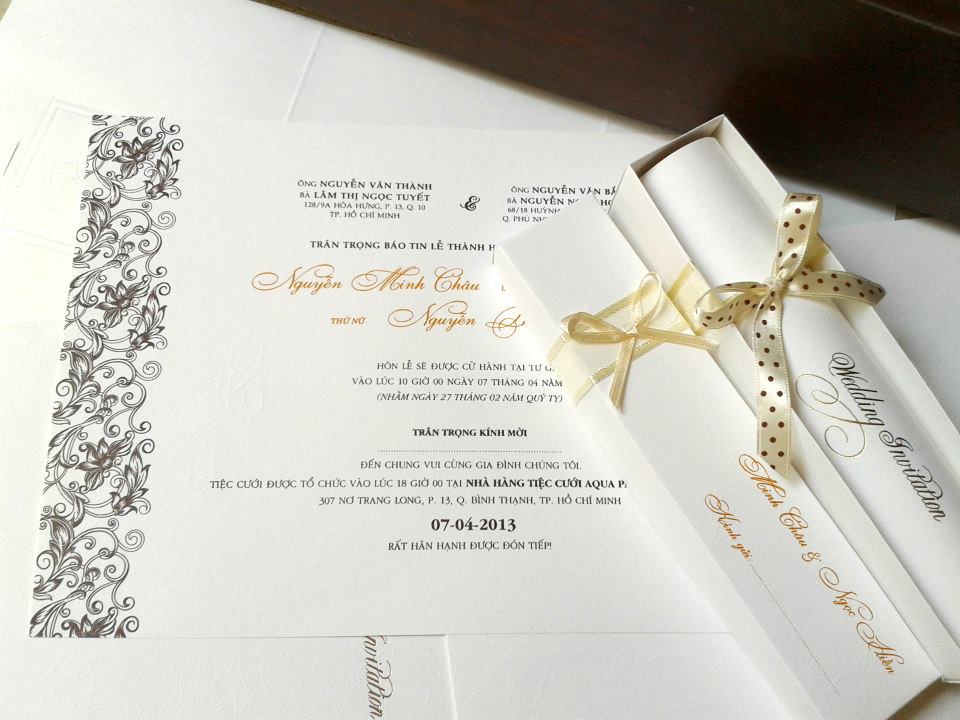 ÔNG NGUYỄN VĂN THÀNH
BÀ LÂM THỊ NGỌC TUYẾT
128/9A HÒA HƯNG, P. 13, Q. 10
TP. HỒ CHÍ MINH
&
ÔNG NGUYỄN VĂN
BÀ NGUYỄN
68/18 HUỲNH
Q. PHÚ
TRÂN TRỌNG BÁO TIN LỄ THÀNH
Nguyễn Minh Châu
THỨ NỮ
Nguyễn
HÔN LỄ SẼ ĐƯỢC CỬ HÀNH TẠI TƯ
VÀO LÚC 10 GIỜ 00 NGÀY 07 THÁNG 04 NĂM
(NHẰM NGÀY 27 THÁNG 02 NĂM QUÝ TỴ)
TRÂN TRỌNG KÍNH MỜI
ĐẾN CHUNG VUI CÙNG GIA ĐÌNH CHÚNG TÔI.
TIỆC CƯỚI ĐƯỢC TỔ CHỨC VÀO LÚC 18 GIỜ 00 TẠI NHÀ HÀNG TIỆC CƯỚI AQUA
307 NƠ TRANG LONG, P. 13, Q. BÌNH THẠNH, TP. HỒ CHÍ MINH
07-04-2013
RẤT HÂN HẠNH ĐƯỢC ĐÓN TIẾP!
Wedding Invitation
Minh Châu & Ngọc Hiền
Kính gửi:
Invitation